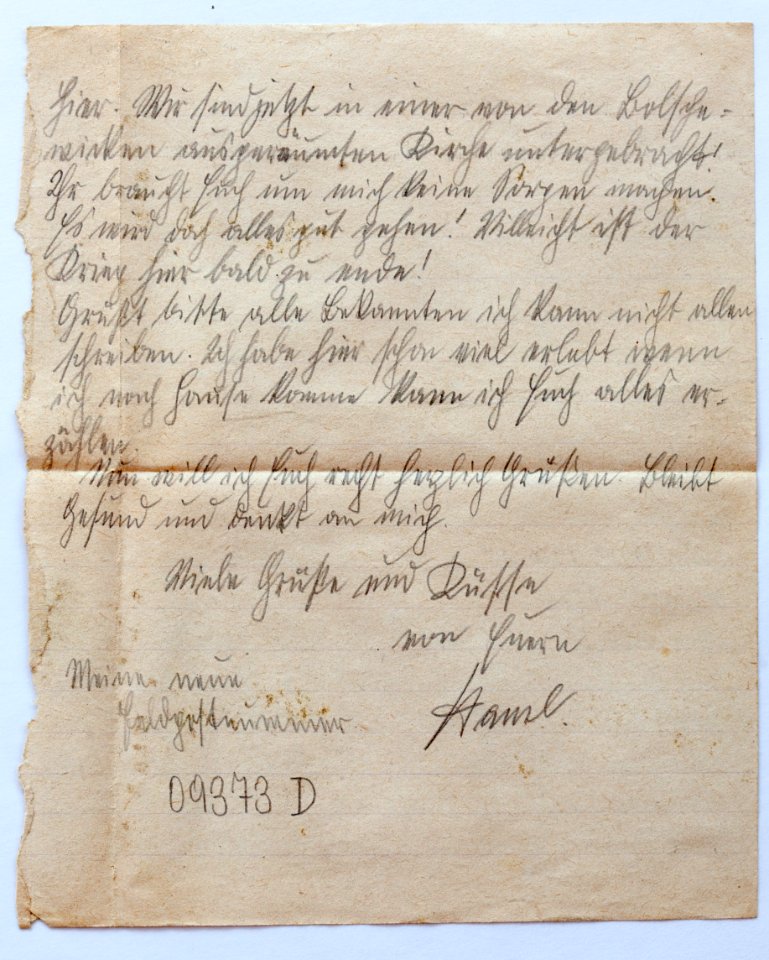 hier. Wir sind jetzt in einer von den Bolsche-
wicken ausgeräumten Kirche untergebracht!
Ihr braucht Euch um mich keine Sorgen machen.
Es wird doch alles gut gehen! Villeicht ist der
Krieg hier bald zu ende!
Grüßt bitte alle Bekannten ich kann nicht allen
schreiben. Ich habe hier schon viel erlebt wenn
ich nach Hause komme kann ich Euch alles er-
zählen.
Nun will ich Euch recht herzlich Grüßen. Bleibt
Gesund und denkt an mich.
Viele Grüße und Küsse
von Euern
Meine neue
Feldpostnummer
09373 D